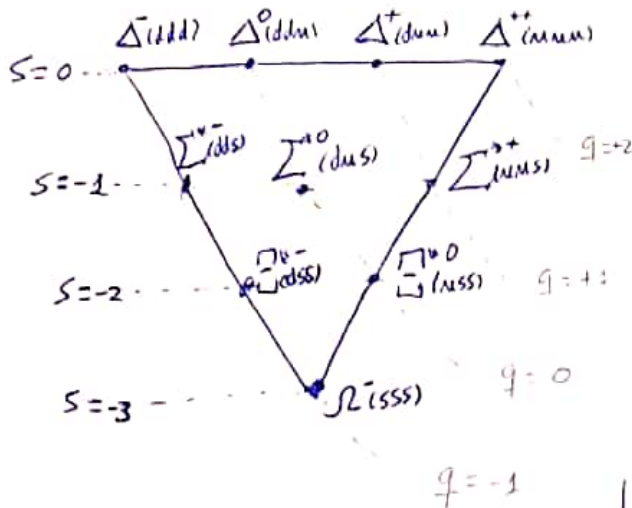 Δ⁻(ddd) Δ⁰(ddu) Δ⁺(duu) Δ⁺⁺(uuu)
S=0
Σ*⁻(dds) Σ*⁰(dus) Σ*⁺(uus)
q=+2
S=-1
Ξ*⁻(dss) Ξ*⁰(uss)
S=-2
q=+1
q=0
S=-3
Ω⁻(sss)
q=-1